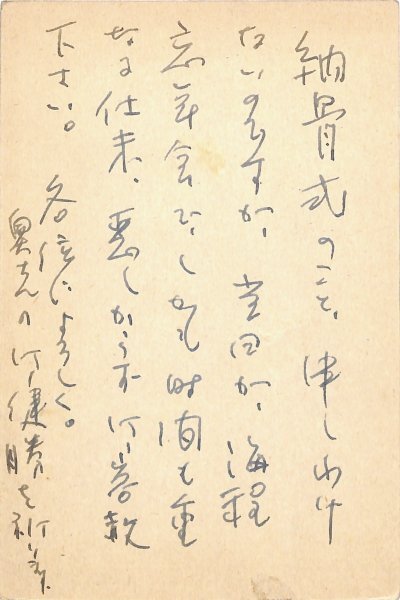 納骨式のこと、申しわけ
ないのですが、当日が、海程
忘年会で、しかも時間も重
なる仕末、悪しからず御容赦
下さい。
各位によろしく。
奥さんの御健勝を祈ります。